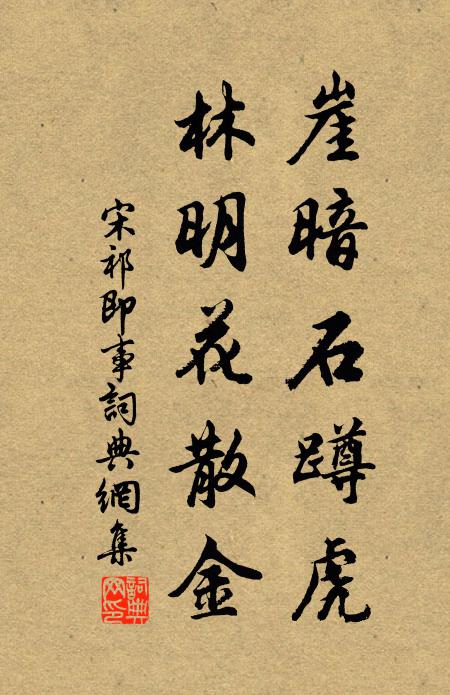 崖暗石蹲虎
林明花散金
宋祁即事詞典網集
詞典网印